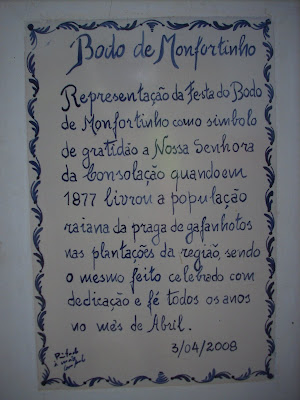 Bodo de Monfortinho
Representação da Festa do Bodo
de Monfortinho como simbolo
de gratidão a Nossa Senhora
da Consolação quando em
1877 livrou a população
raiana da praga de gafanhotos
nas plantações da região, sendo
o mesmo feito celebrado com
dedicação e fé todos os anos
no mês de Abril.
3/04/2008